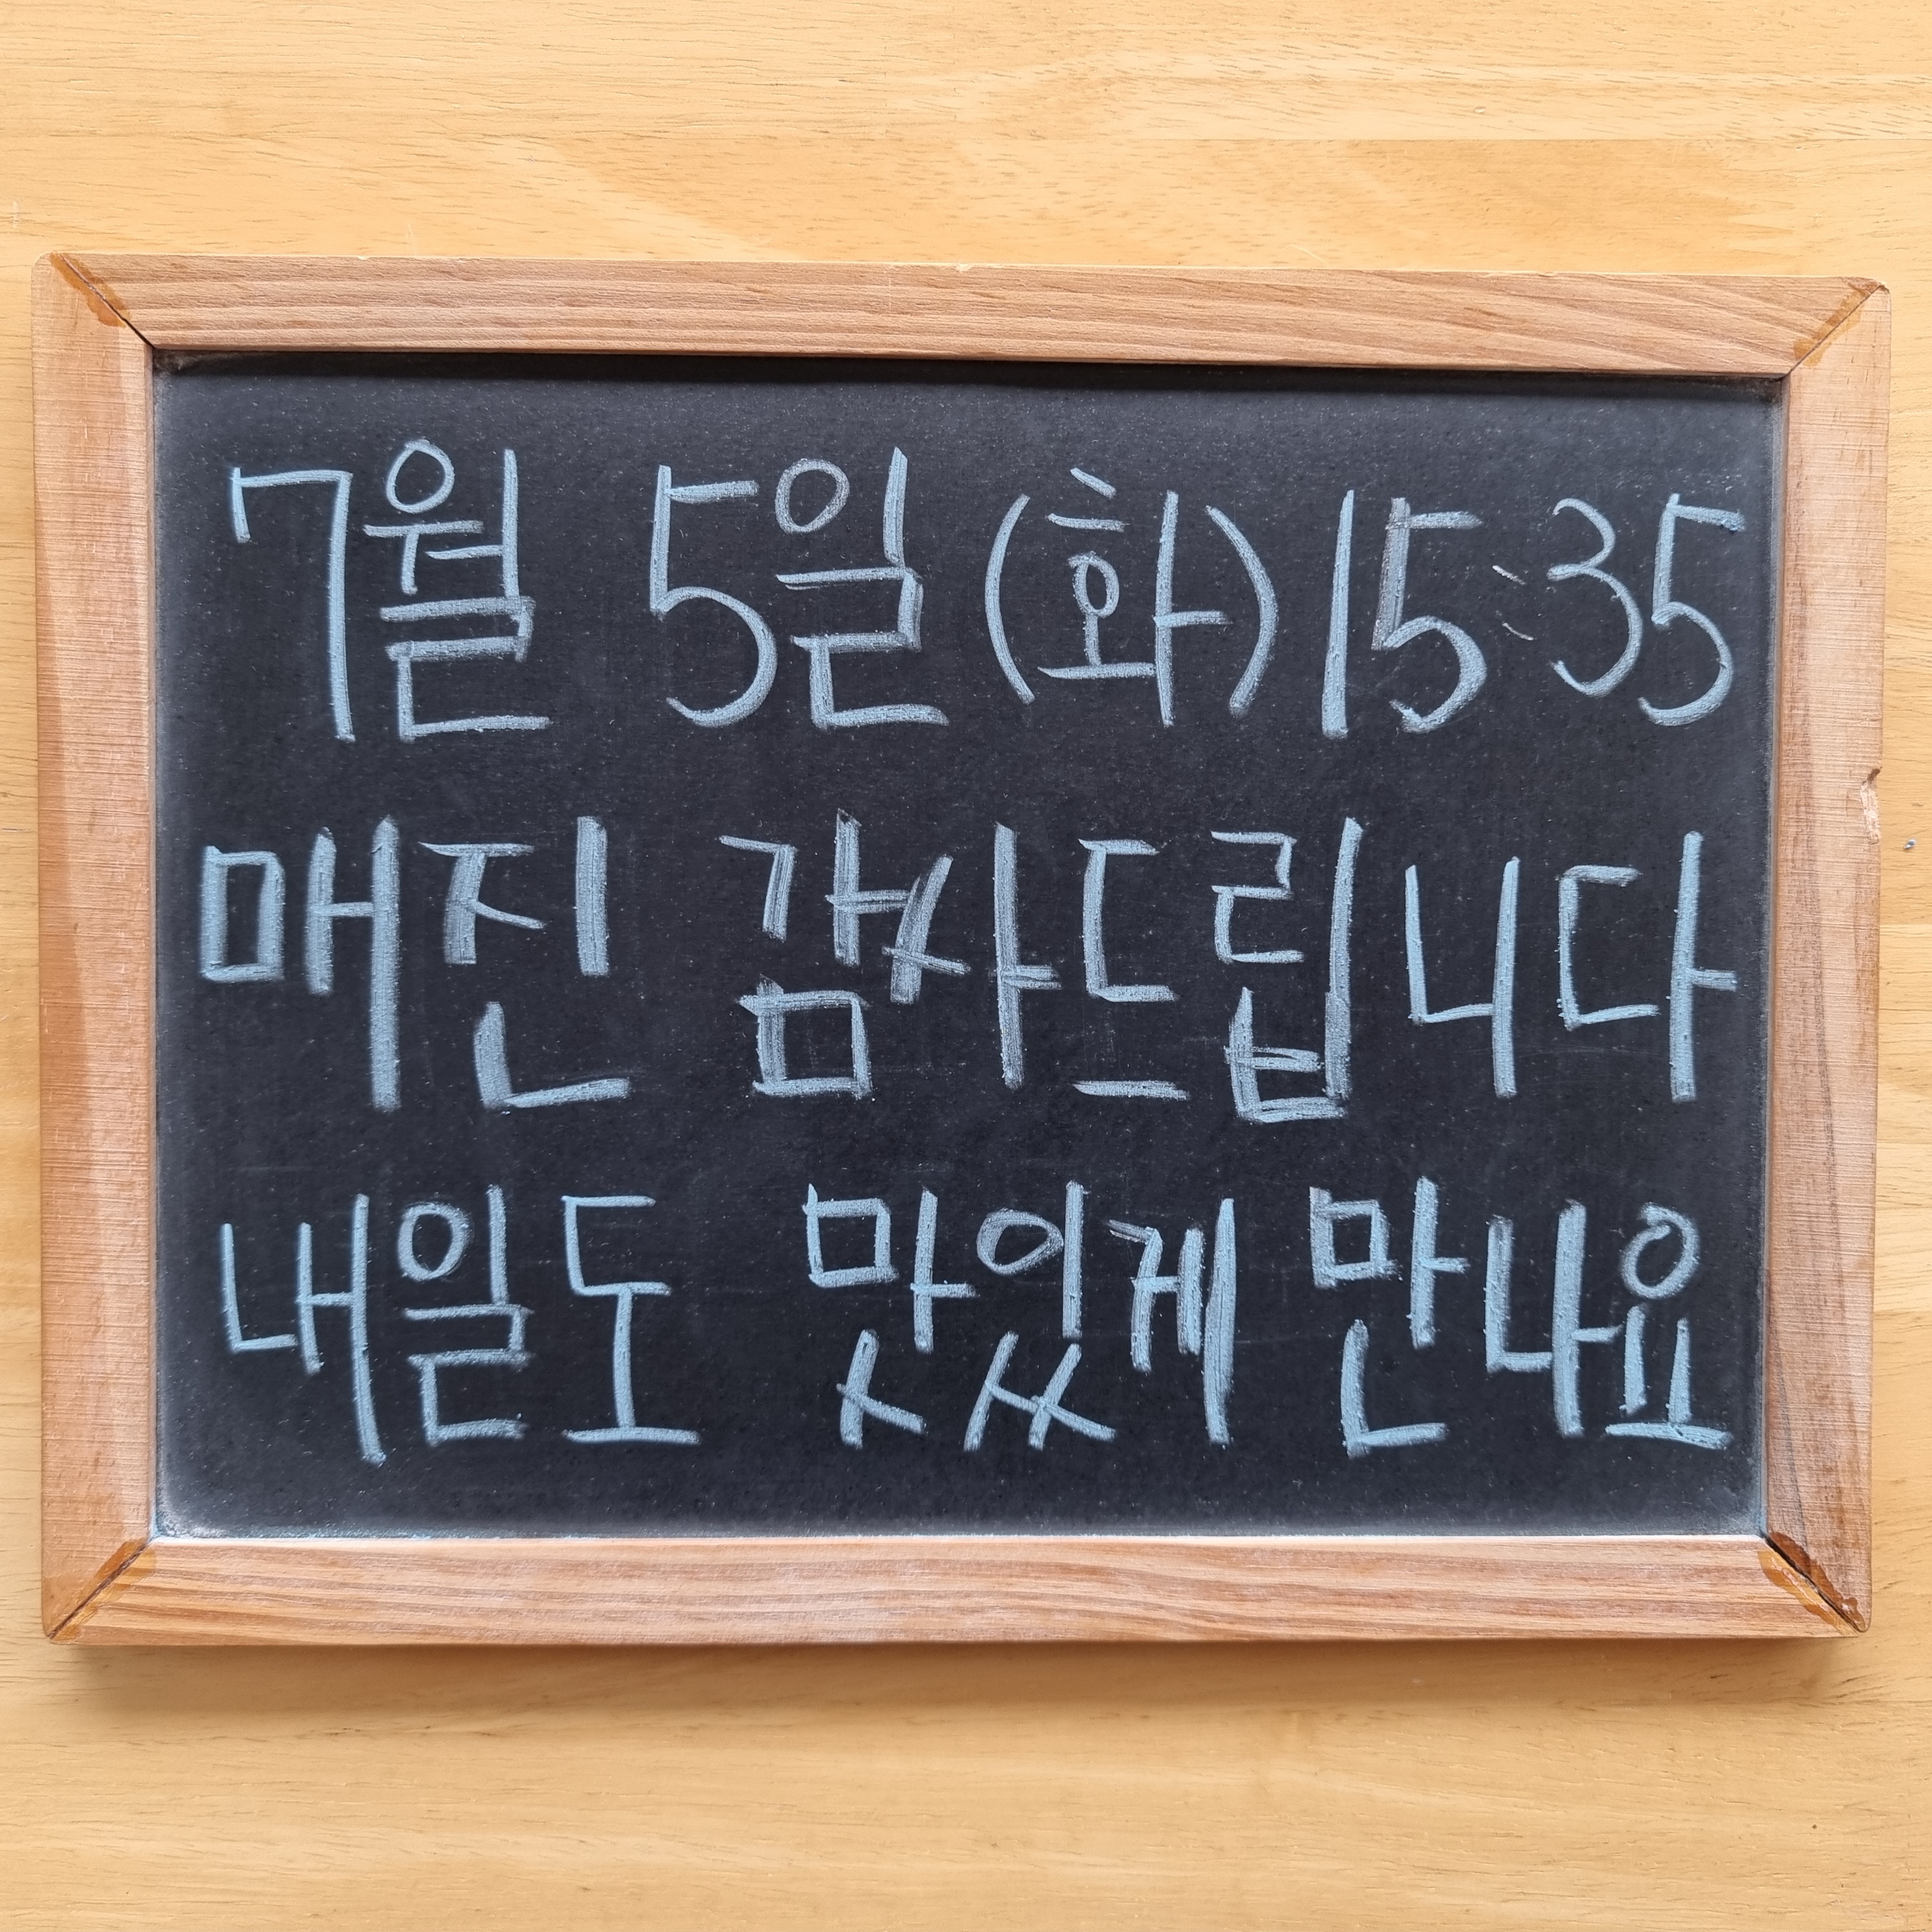 7월 5일(화) 15:35
매진 감사드립니다
내일도 맛있게 만나요